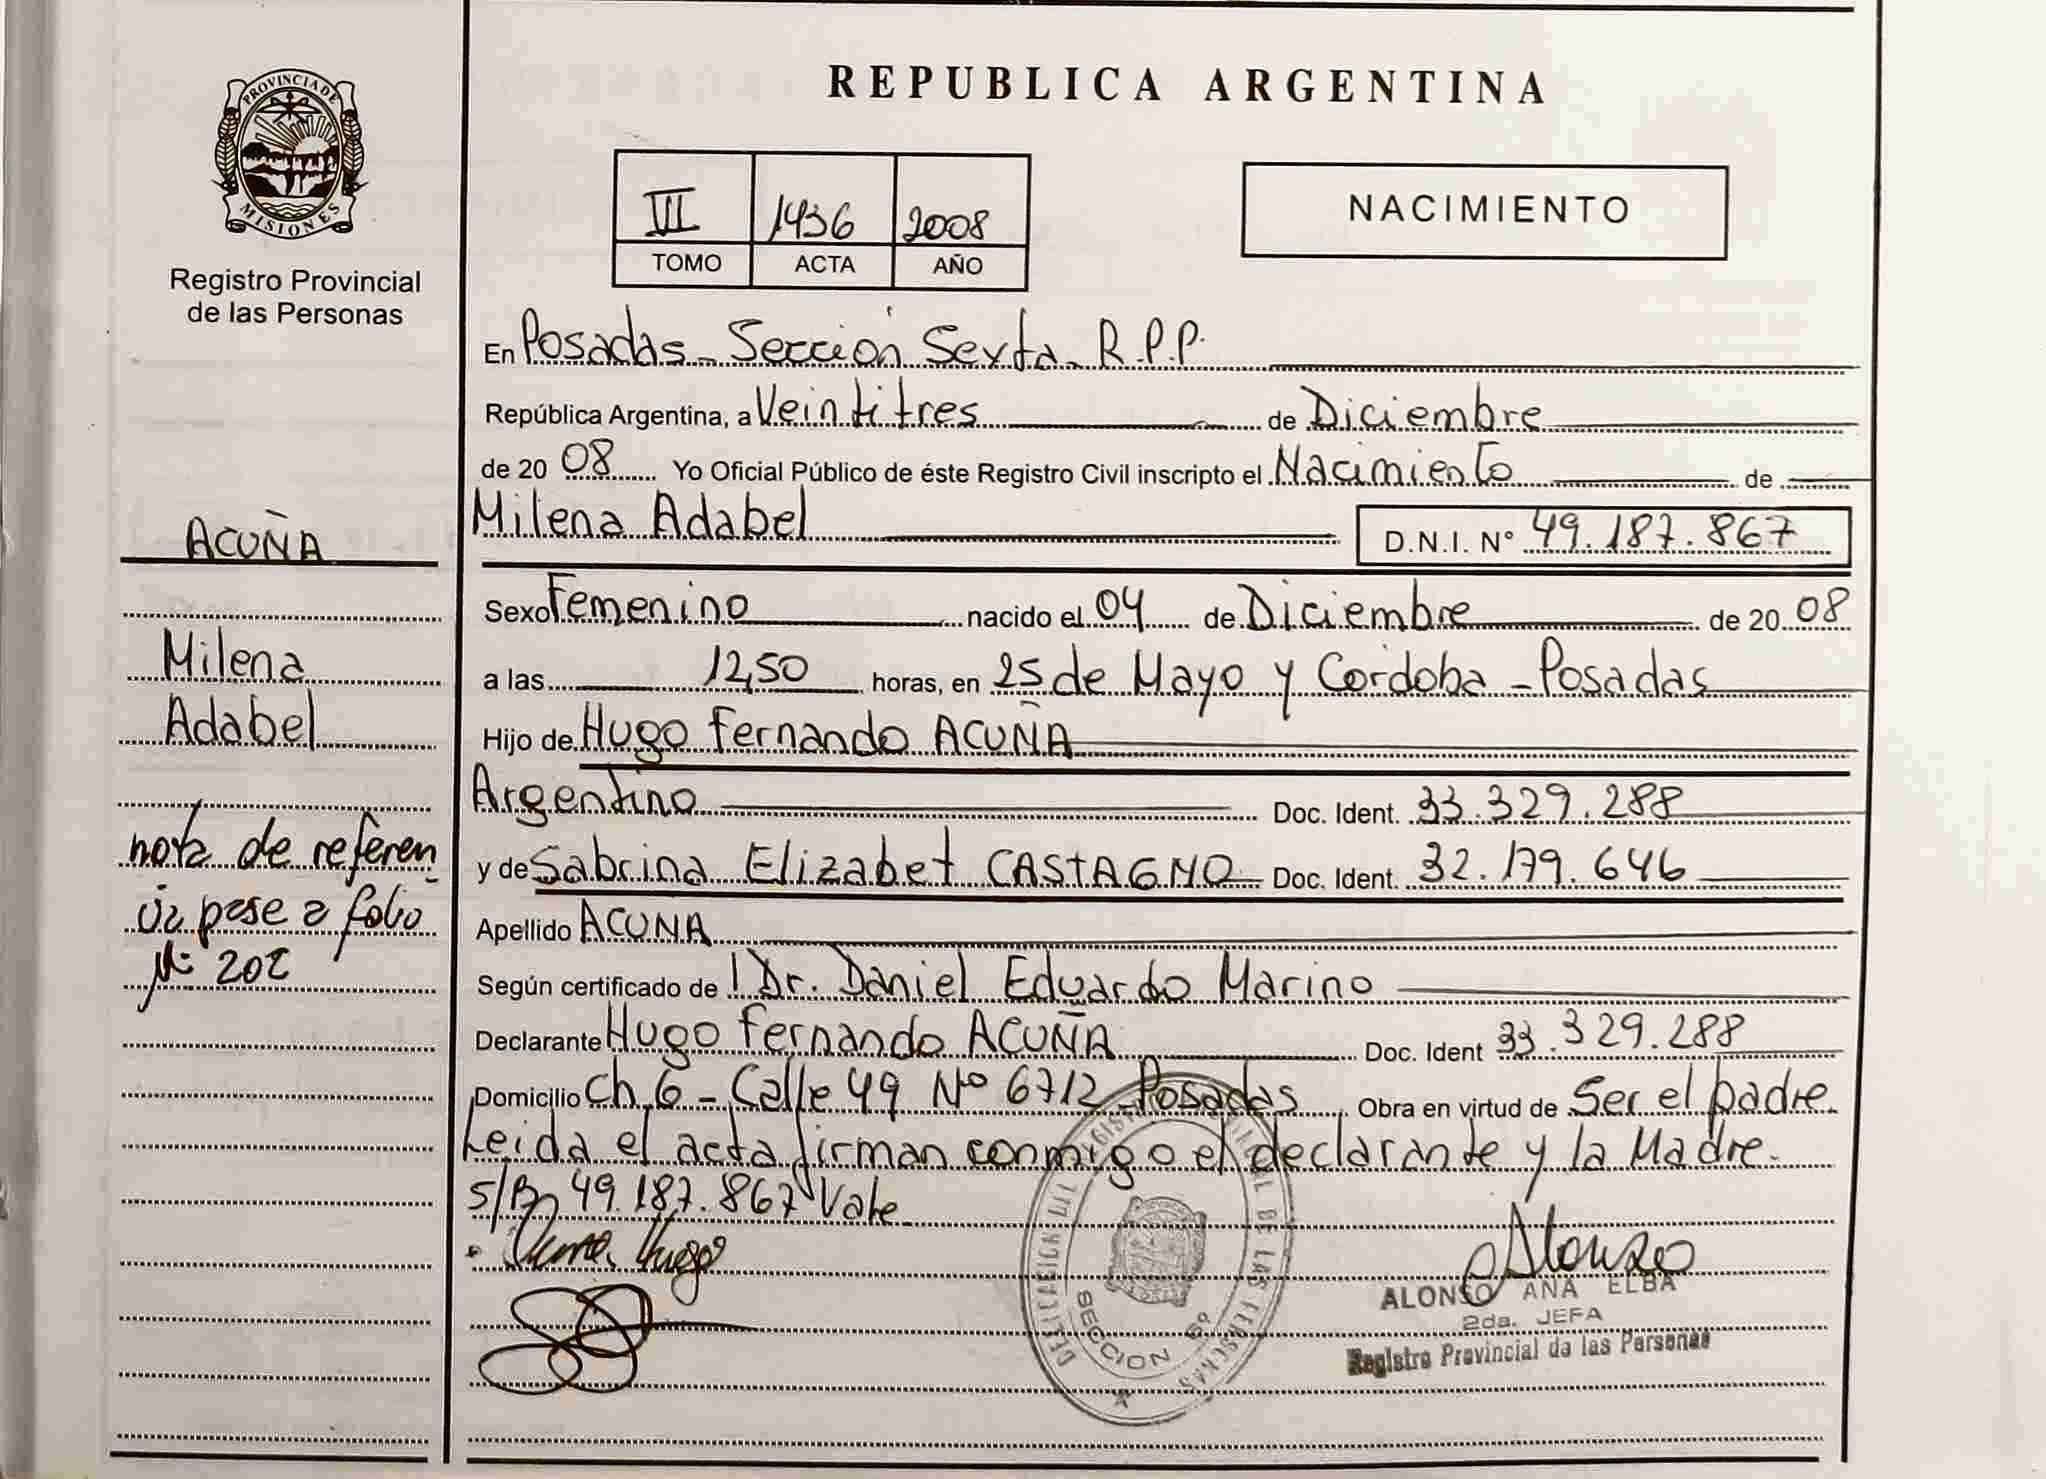 PROVINCIA DE
MISIONES
Registro Provincial
de las Personas
ACUÑA
Milena
Adabel
nota de referen
cia pase a folio
Nº 202
REPUBLICA ARGENTINA
VII 1436 2008
TOMO ACTA AÑO
NACIMIENTO
En Posadas - Sección Sexta - R.P.P.
República Argentina, a Veintitres de Diciembre
de 20 08 Yo Oficial Público de éste Registro Civil inscripto el Nacimiento de
Milena Adabel D.N.I. Nº 49.187.867
Sexo Femenino nacido el 04 de Diciembre de 20 08
a las 12,50 horas, en 25 de Mayo y Cordoba - Posadas
Hijo de Hugo Fernando ACUÑA
Argentino Doc. Ident. 33.329.288
y de Sabrina Elizabet CASTAGNO Doc. Ident. 32.179.646
Apellido ACUÑA
Según certificado de Dr. Daniel Eduardo Marino
Declarante Hugo Fernando ACUÑA Doc. Ident 33.329.288
Domicilio Ch. 6 - Calle 49 Nº 6712 - Posadas Obra en virtud de Ser el padre.
Leida el acta firman conmigo el declarante y la Madre.
S/B 49.187.867 Vale
Hugo
Alonso
ALONSO ANA ELBA
2da. JEFA
Registro Provincial de las Personas
SECCION 6º